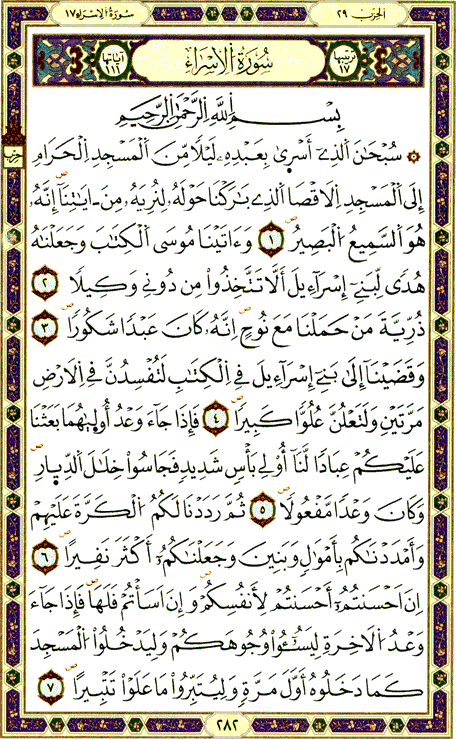 سُورَةُ الْإِسْرَاء ١٧
الحِزْب ٢٩
ترتيبها ١٧ سُورَةُ الْإِسْرَاء آياتها
بِسْمِ اللَّهِ الرَّحْمَٰنِ الرَّحِيمِ
سُبْحَٰنَ اَلذِےٓ أَسْرَىٰ بِعَبْدِهِۦ لَيْلًا مِّنَ اَلْمَسْجِدِ اِلْحَرَامِ
إِلَى اَلْمَسْجِدِ اِلَاقْصَا اَلذِے بَٰرَكْنَا حَوْلَهُۥ لِنُرِيَهُۥ مِنَ ـايَٰتِنَآ إِنَّهُۥ
هُوَ اَلسَّمِيعُ اُلْبَصِيرُ ١ وَءَاتَيْنَا مُوسَى اَلْكِتَٰبَ وَجَعَلْنَٰهُ
هُدًى لِّبَنِےٓ إِسْرَآءِيلَ أَلَّا تَتَّخِذُوا۟ مِن دُونِے وَكِيلًا ٢
ذُرِّيَّةَ مَنْ حَمَلْنَا مَعَ نُوحٍ اِنَّهُۥ كَانَ عَبْدًا شَكُورًا ٣
وَقَضَيْنَآ إِلَىٰ بَنِےٓ إِسْرَآءِيلَ فِے اِلْكِتَٰبِ لَتُفْسِدُنَّ فِے اِلَارْضِ
مَرَّتَيْنِ وَلَتَعْلُنَّ عُلُوًّا كَبِيرًا ٤ فَإِذَا جَآءَ وَعْدُ أُولَىٰهُمَا بَعَثْنَا
عَلَيْكُمْ عِبَادًا لَّنَآ أُو۟لِے بَأْسٍ شَدِيدٍ فَجَاسُوا۟ خِلَٰلَ اَلدِّيَارِ
وَكَانَ وَعْدًا مَّفْعُولًا ٥ ثُمَّ رَدَدْنَا لَكُمُ اُلْكَرَّةَ عَلَيْهِمْ
وَأَمْدَدْنَٰكُم بِأَمْوَٰلٍ وَبَنِينَ وَجَعَلْنَٰكُمُۥٓ أَكْثَرَ نَفِيرًا ٦
اِنَ اَحْسَنتُمُۥٓ أَحْسَنتُمْ لِأَنفُسِكُمْ وَإِنَ اَسَأْتُمْ فَلَهَا فَإِذَا جَآءَ
وَعْدُ اُلَاخِرَةِ لِيَسُـُٔوا۟ وُجُوهَكُمْ وَلِيَدْخُلُوا۟ اُلْمَسْجِدَ
كَمَا دَخَلُوهُ أَوَّلَ مَرَّةٍ وَلِيُتَبِّرُوا۟ مَا عَلَوْا۟ تَتْبِيرًا ٧
حزب
٢٨٢